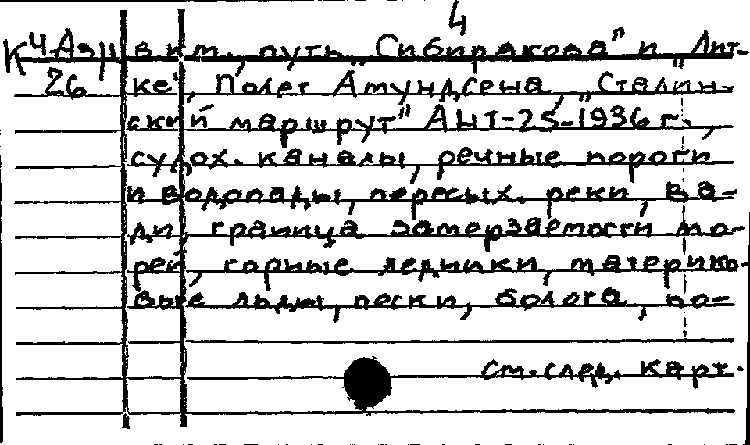 4
К 4Аз/1 в км., путь „Сибирякова" и „Лит-
26 ке", Полет Амундсена, „Сталин-
ский маршрут" АНТ-25-1936 г.,
судох. каналы, речные пороги
и водопады, пересых. реки, ва-
ди, граница замерзаемости мо-
рей, горные ледники, материко-
вые льды, пески, болота, по-
см. след. карт.